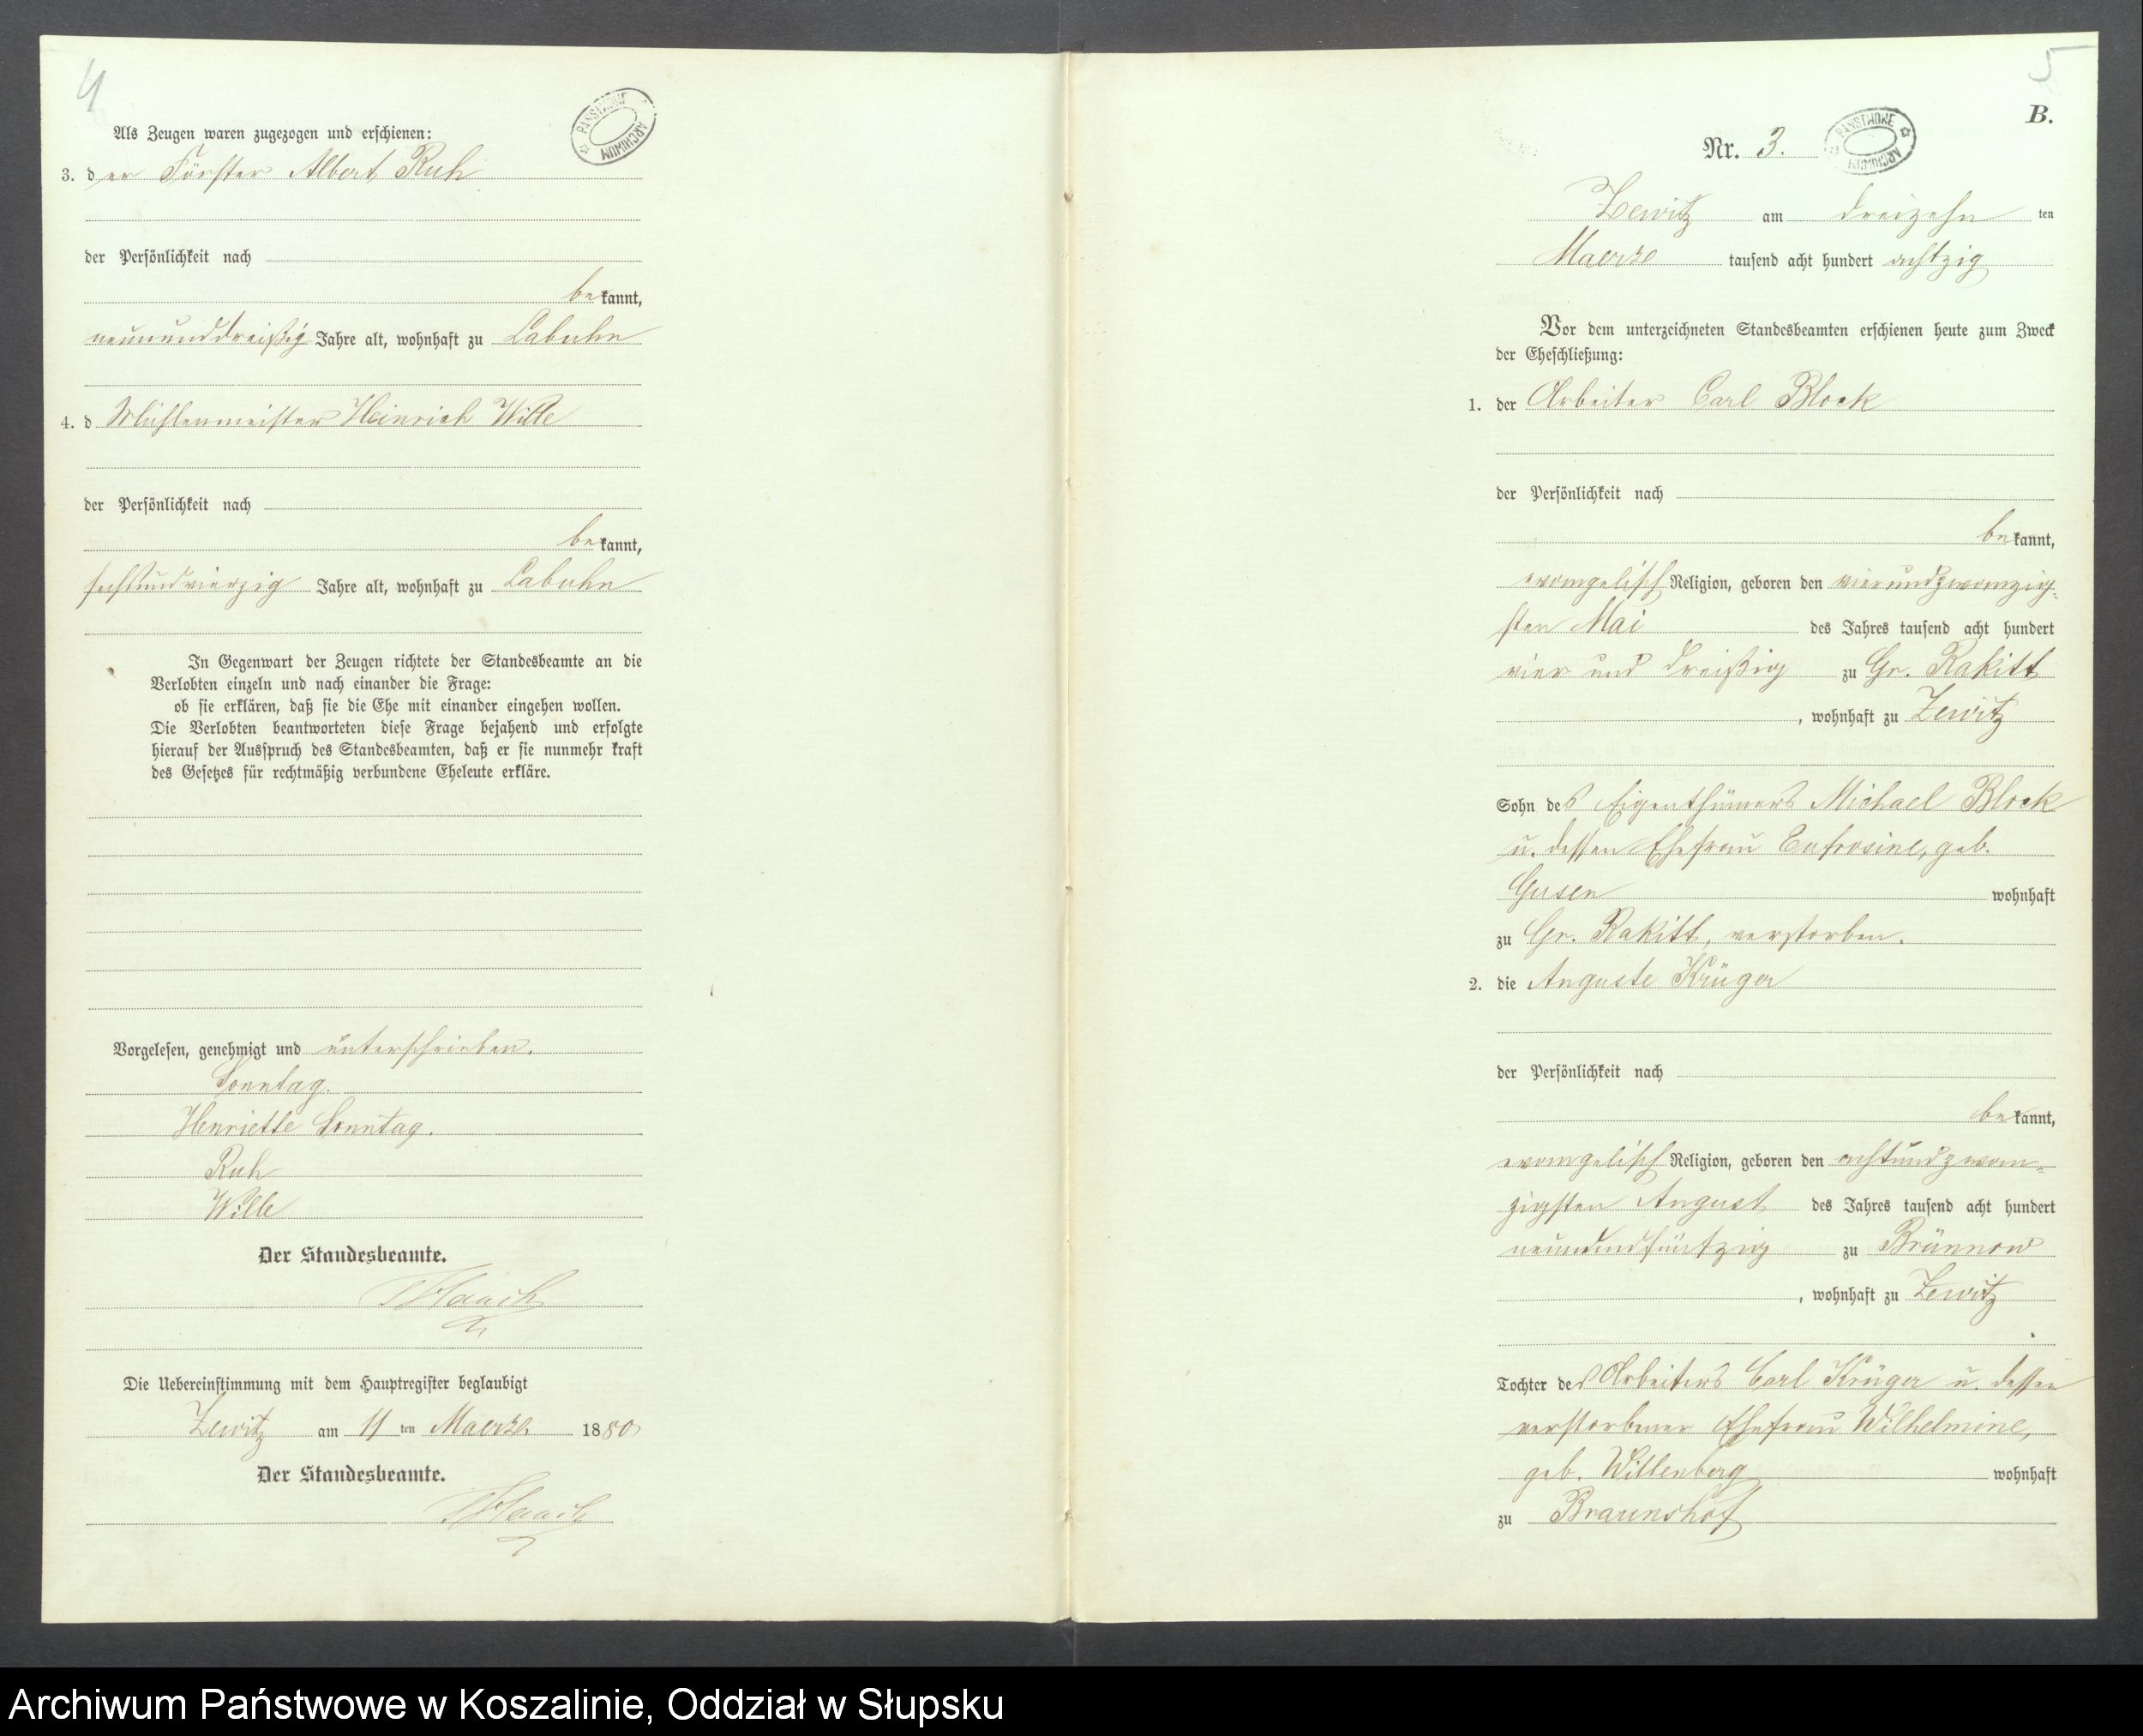 4
Als Zeugen waren zugezogen und erschienen:
3. der Förster Albert Ruh
der Persönlichkeit nach
bekannt,
neununddreißig Jahre alt, wohnhaft zu Labuhn
4. d Mühlenmeister Heinrich Wille
der Persönlichkeit nach
bekannt,
sechsundvierzig Jahre alt, wohnhaft zu Labuhn
In Gegenwart der Zeugen richtete der Standesbeamte an die
Verlobten einzeln und nach einander die Frage:
ob sie erklären, daß sie die Ehe mit einander eingehen wollen.
Die Verlobten beantworteten diese Frage bejahend und erfolgte
hierauf der Ausspruch des Standesbeamten, daß er sie nunmehr kraft
des Gesetzes für rechtmäßig verbundene Eheleute erkläre.
Vorgelesen, genehmigt und unterschrieben.
Sonntag.
Henriette Sonntag.
Ruh
Wille
Der Standesbeamte.
Die Uebereinstimmung mit dem Hauptregister beglaubigt
Zewitz am 11 ten Maerz. 1880
Der Standesbeamte.
PANSTWOWE ARCHIWUM
5
B.
Nr. 3.
PANSTWOWE ARCHIWUM
Zewitz am dreizehn ten
Maerze tausend acht hundert achtzig
Vor dem unterzeichneten Standesbeamten erschienen heute zum Zweck
der Eheschließung:
1. der Arbeiter Carl Block
der Persönlichkeit nach
bekannt,
evangelisch Religion, geboren den vierundzwanzig-
sten Mai des Jahres tausend acht hundert
vier und dreißig zu Gr. Rakitt
, wohnhaft zu Zewitz
Sohn des Eigenthümers Michael Block
u. dessen Ehefrau Eufrosine, geb.
Gusen wohnhaft
zu Gr. Rakitt, verstorben.
2. die Auguste Krüger
der Persönlichkeit nach
bekannt,
evangelisch Religion, geboren den achtundzwan-
zigsten August des Jahres tausend acht hundert
neunundfünfzig zu Brünnow
, wohnhaft zu Zewitz
Tochter des Arbeiters Carl Krüger u. dessen
verstorbener Ehefrau Wilhelmine,
geb. Willenberg wohnhaft
zu Braunshof
Archiwum Państwowe w Koszalinie, Oddział w Słupsku